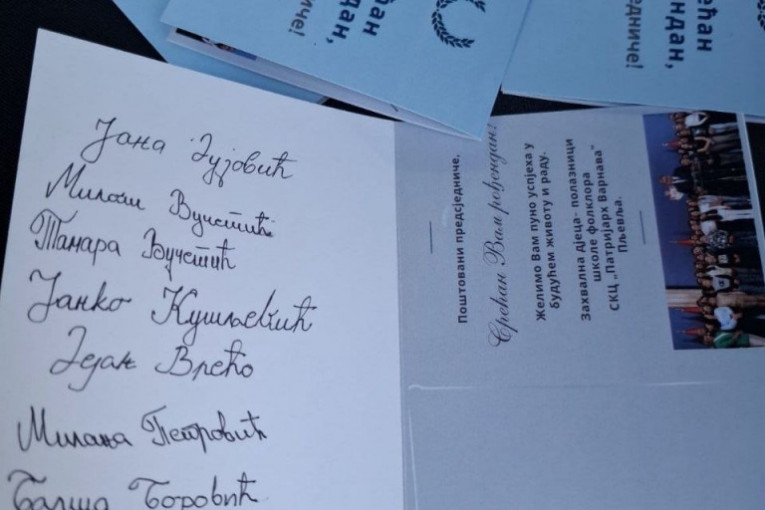 Јана Зујовић
Милош Вучетић
Тамара Вучетић
Јанко Кушљевић
Дејан Врећо
Милања Петровић
Балша Боровић
Поштовани предсједниче.
Срећан Вам рођендан!
Желимо Вам пуно успјеха у
будућем животу и раду.
Захвална дјеца- полазници
школе фолклора
СКЦ „Патријарх Варнава"
Пљевља.
ћан
дан,
ниче!
ећан
ндан,
едниче!